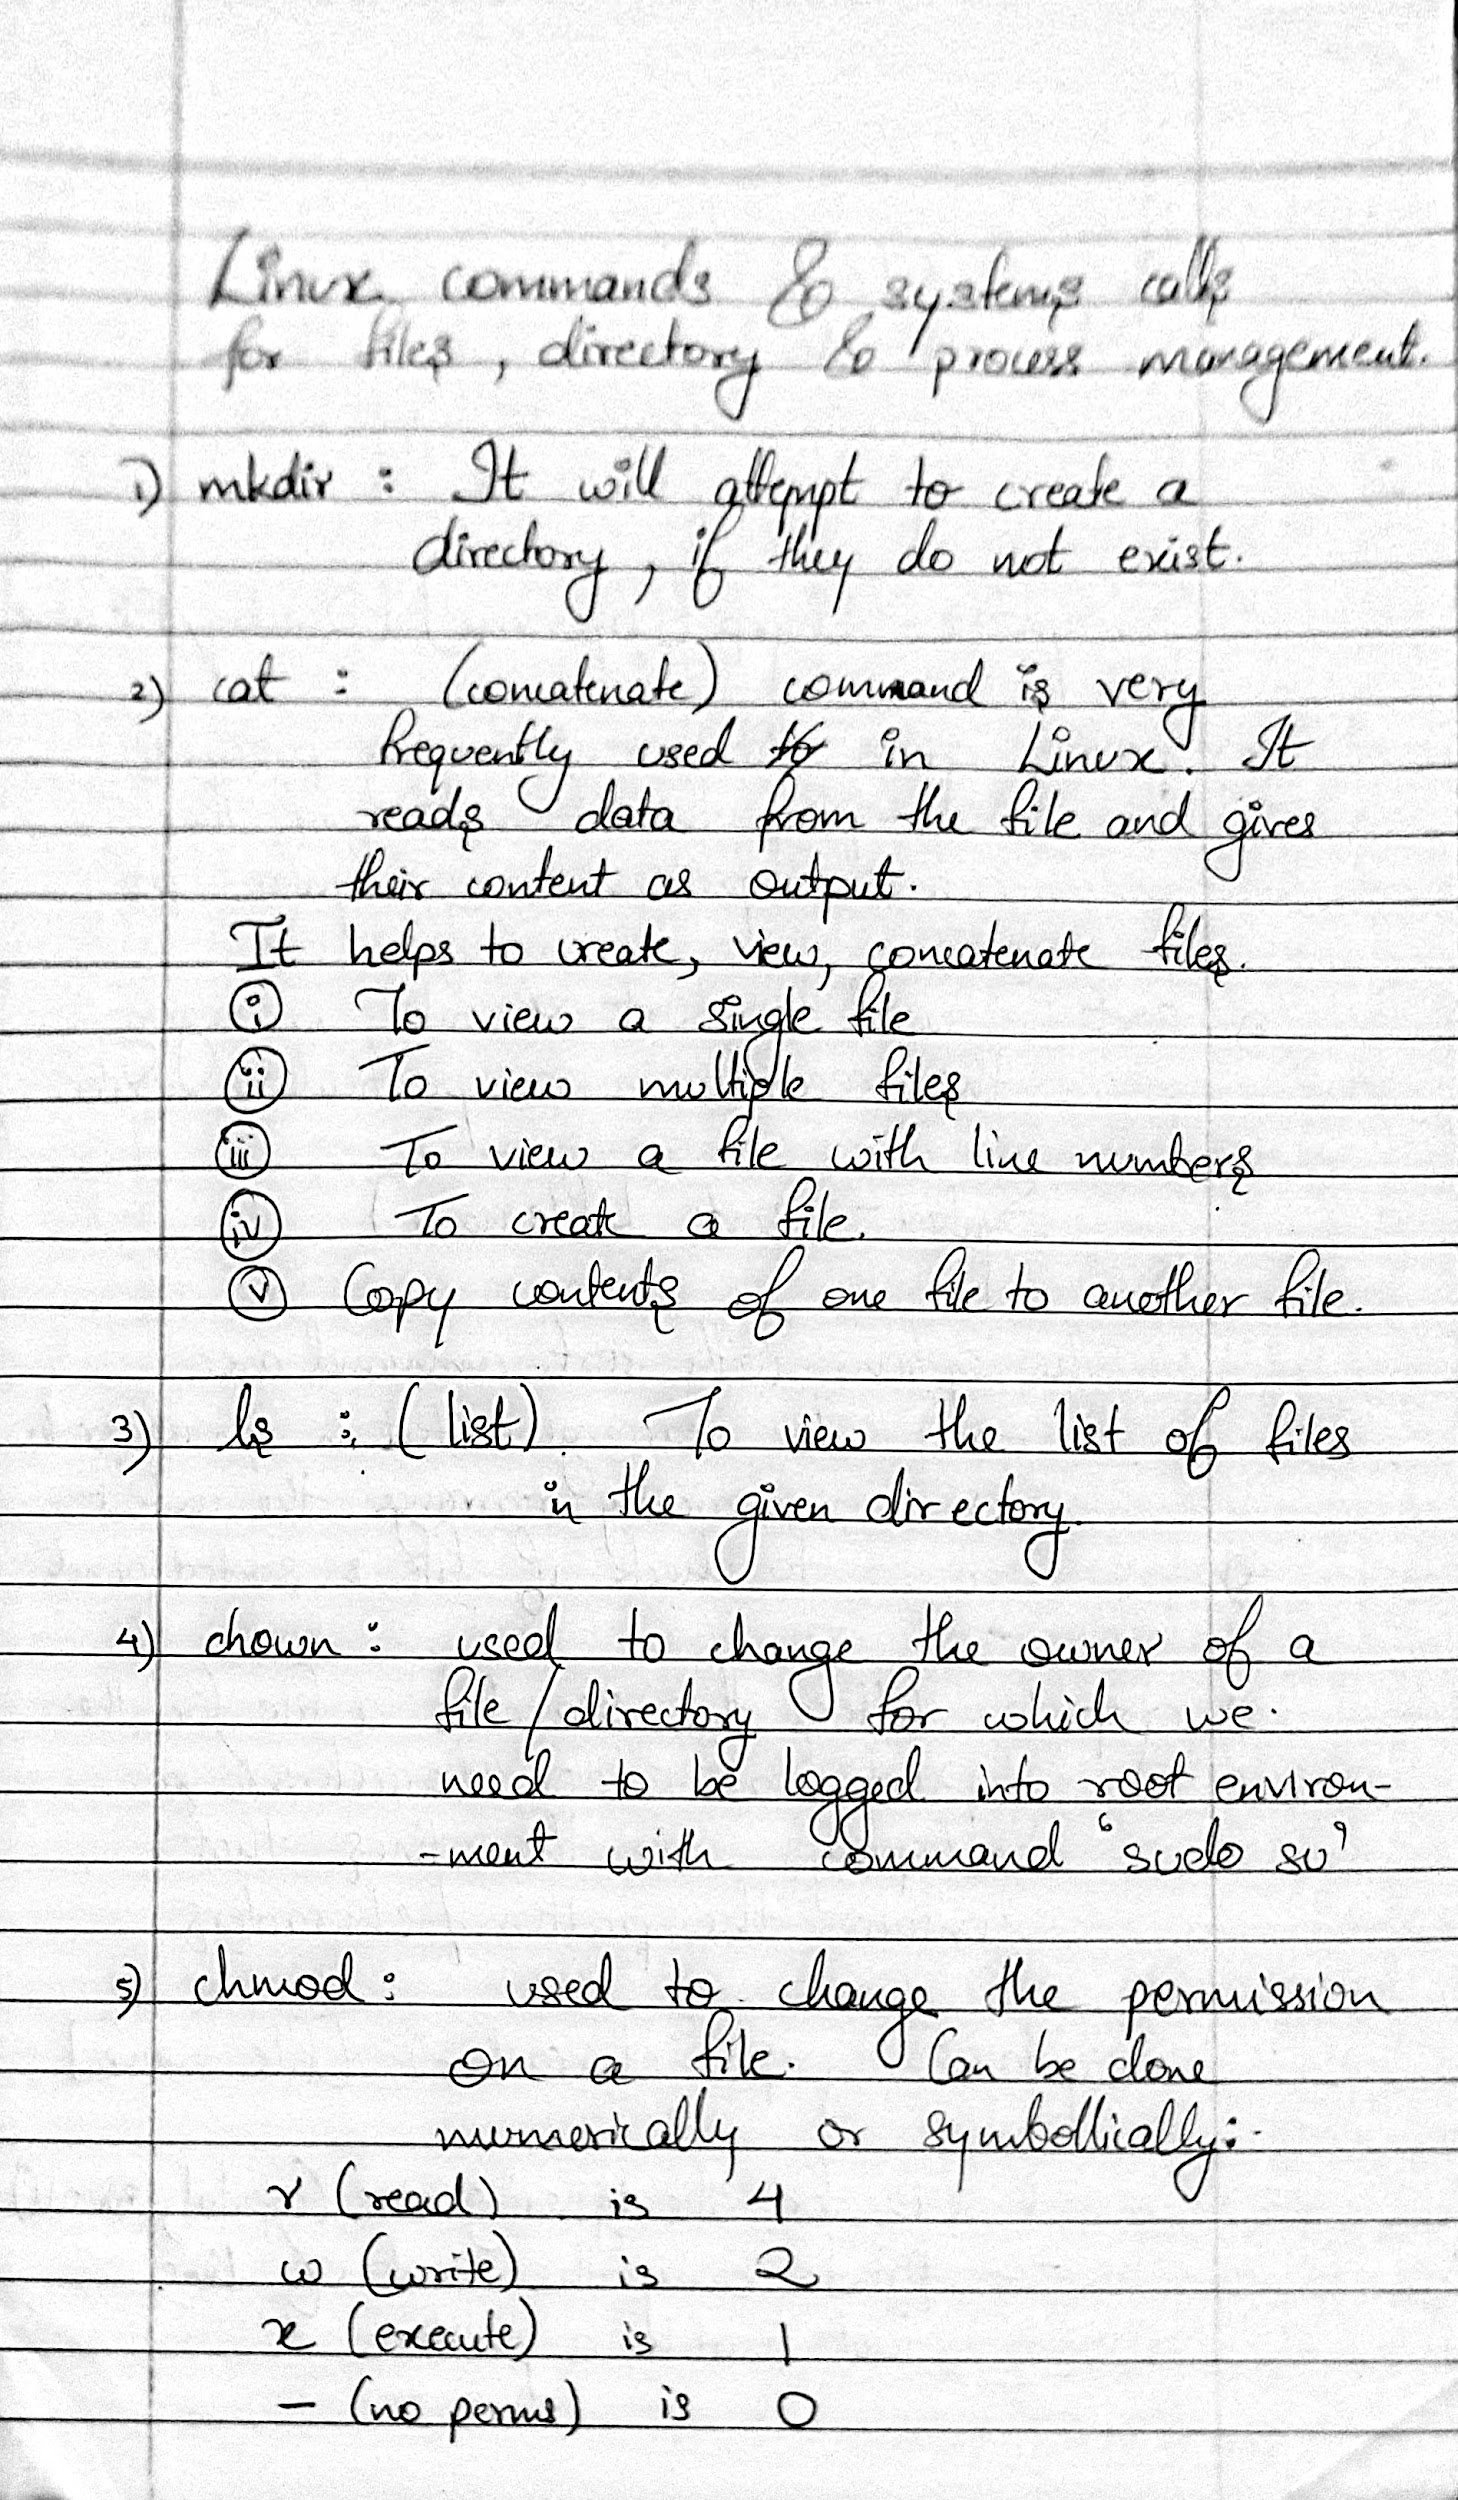 Linux commands & systems calls
for files, directory & process management.
1) mkdir : It will attempt to create a
directory, if they do not exist.
2) cat : (concatenate) command is very
frequently used in Linux. It
reads data from the file and gives
their content as output.
It helps to create, view, concatenate files.
(i) To view a single file
(ii) To view multiple files
(iii) To view a file with line numbers
(iv) To create a file.
(v) Copy contents of one file to another file.
3) ls : (list). To view the list of files
in the given directory.
4) chown : used to change the owner of a
file/directory for which we
need to be logged into root environ-
-ment with command 'sudo su'
5) chmod : used to change the permission
on a file. Can be done
numerically or symbollically:-
r (read) is 4
w (write) is 2
x (execute) is 1
- (no perms) is 0